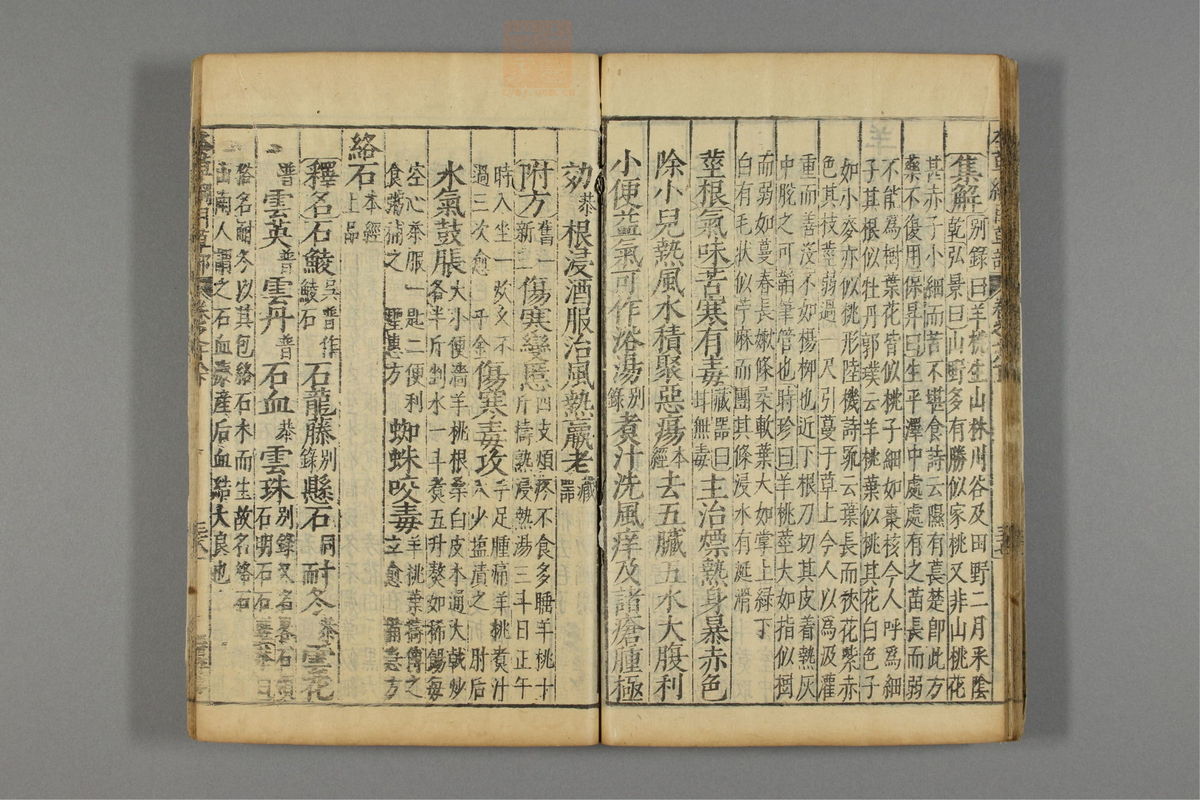 本草綱目草部 卷之十八下
集解別錄曰羊桃生山林川谷及田野二月采陰
乾弘景曰山野多有勝似家桃又非山桃花
其赤子小細而苦不堪食詩云隰有萇楚即此方
藥不復用保昇曰生平澤中處處有之苗長而弱
不能爲樹葉花皆似桃子細如棗核今人呼爲細
子其根似牡丹郭璞云羊桃葉似桃其花白色子
如小麥亦似桃形陸機詩疏云葉長而狹花紫赤
色其枝莖弱過一尺引蔓于草上今人以爲汲灌
重而善沒不如楊柳也近下根刀切其皮着熱灰
中脫之可韜筆管也時珍曰羊桃莖大如指似樹
而弱如蔓春長嫩條柔軟葉大如掌上綠下
白有毛狀似苧麻而團其條浸水有涎滑
莖根氣味苦寒有毒藏器曰甘無毒主治熛熱身暴赤色
除小兒熱風水積聚惡瘍本經去五臟五水大腹利
小便益氣可作浴湯別錄煮汁洗風痒及諸瘡腫極
効恭根浸酒服治風熱羸老藏器
附方舊一新三傷寒變𧏾四支煩疼不食多睡羊桃十斤擣熟浸熱湯三斗日正午
時入坐一炊久不過三次愈千金傷寒毒攻手足腫痛羊桃煮汁入少鹽漬之肘后
水氣鼓脹大小便濇羊桃根桑白皮木通大戟炒各半斤剉水一斗煮五升熬如稀餳每
空心茶服一匙二便利食粥補之聖惠方蜘蛛咬毒羊桃葉擣傅之立愈備急方
絡石本經上品
釋名石鯪吳普作鯪石石龍藤別錄懸石同耐冬恭雲花
普雲英普雲丹普石血恭雲珠別錄又名
石明石
絡名耐冬以其包絡石木而生故名絡石
山南人謂之石血療產后血結大良也
本草綱目草部 卷之十八下